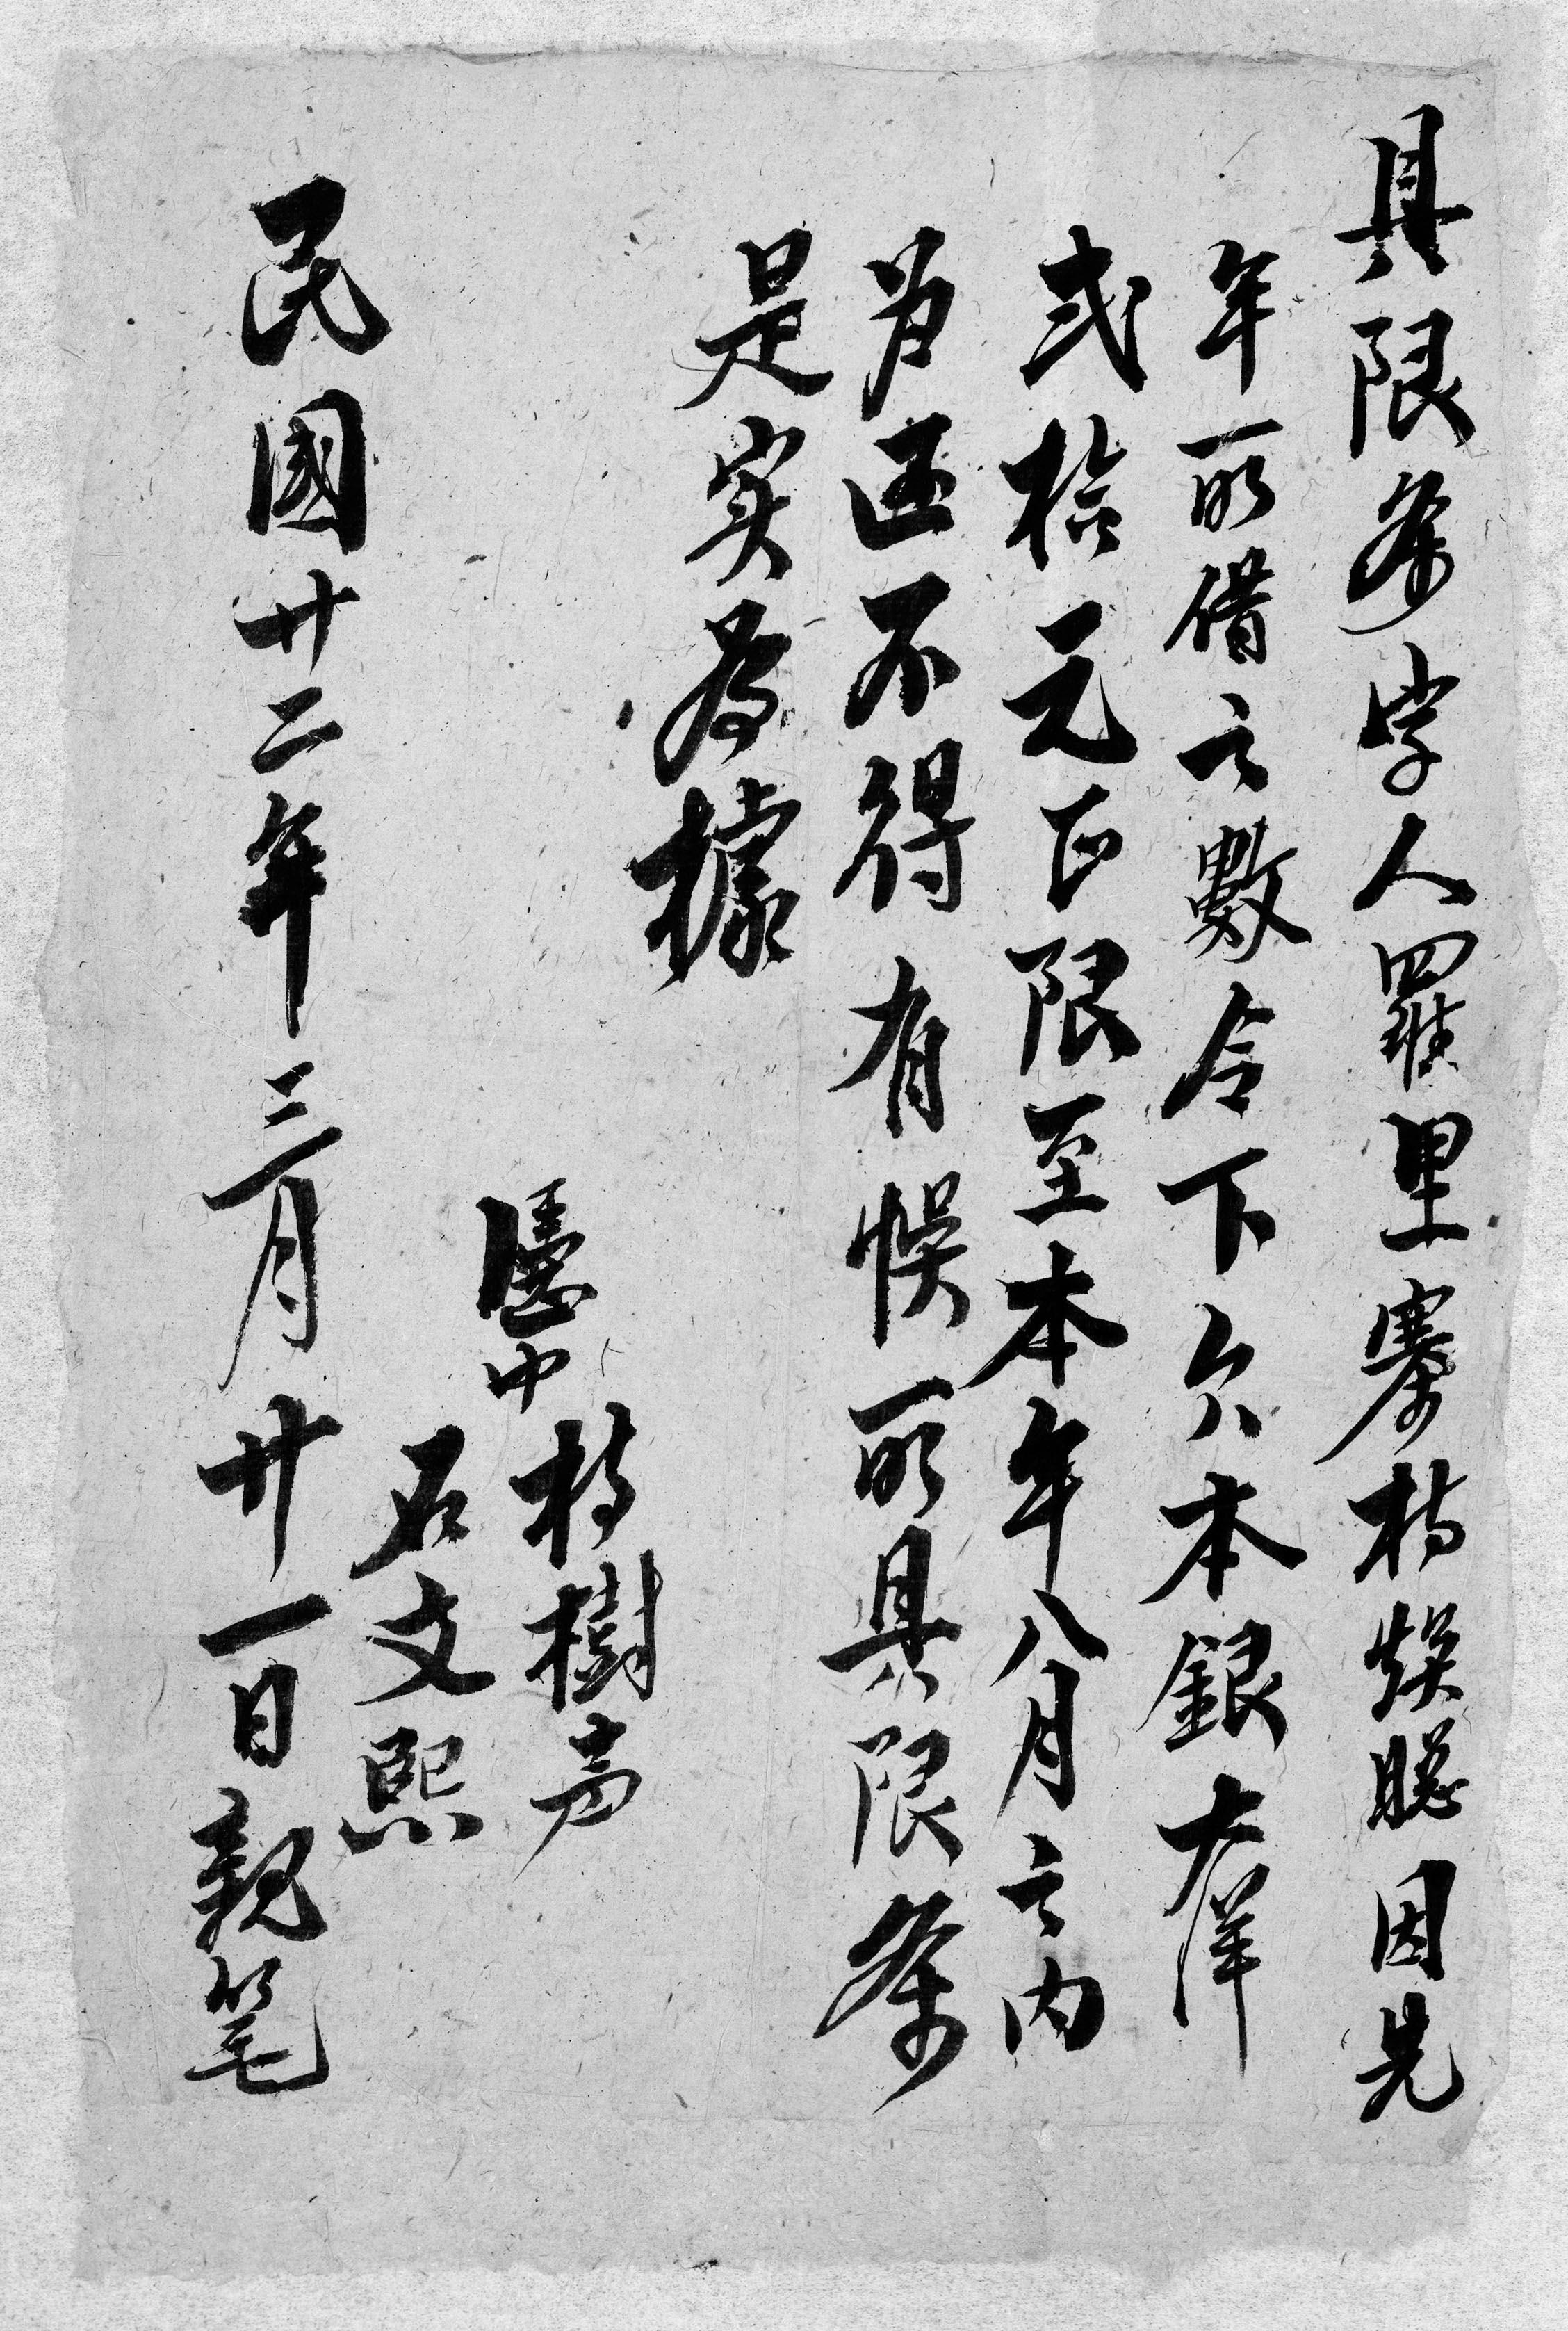 具限条字人羅里寨楊焕聪因先
年所借之數令下欠本銀大洋
弍拾元正限至本年八月之内
為还不得有悮所具限条
是实為據
憑中楊樹声
石文熙
民國廿二年三月廿一日親笔